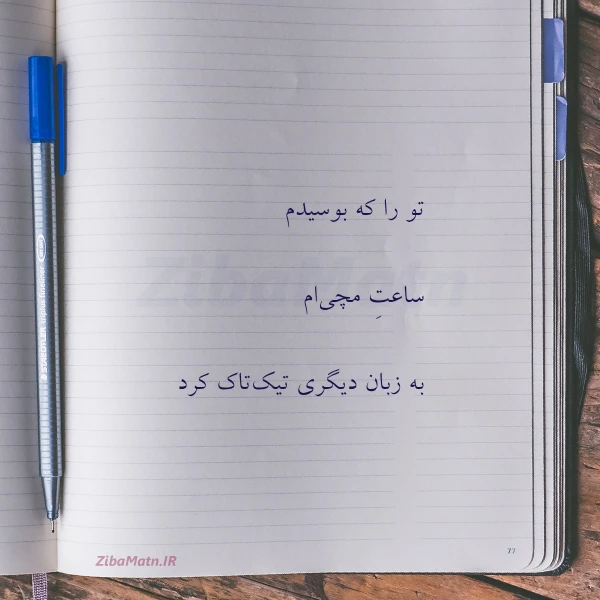 تو را که بوسیدم
ZibaMatn
ساعتِ مچی‌ام
به زبان دیگری تیک‌تاک کرد
ZibaMatn.IR